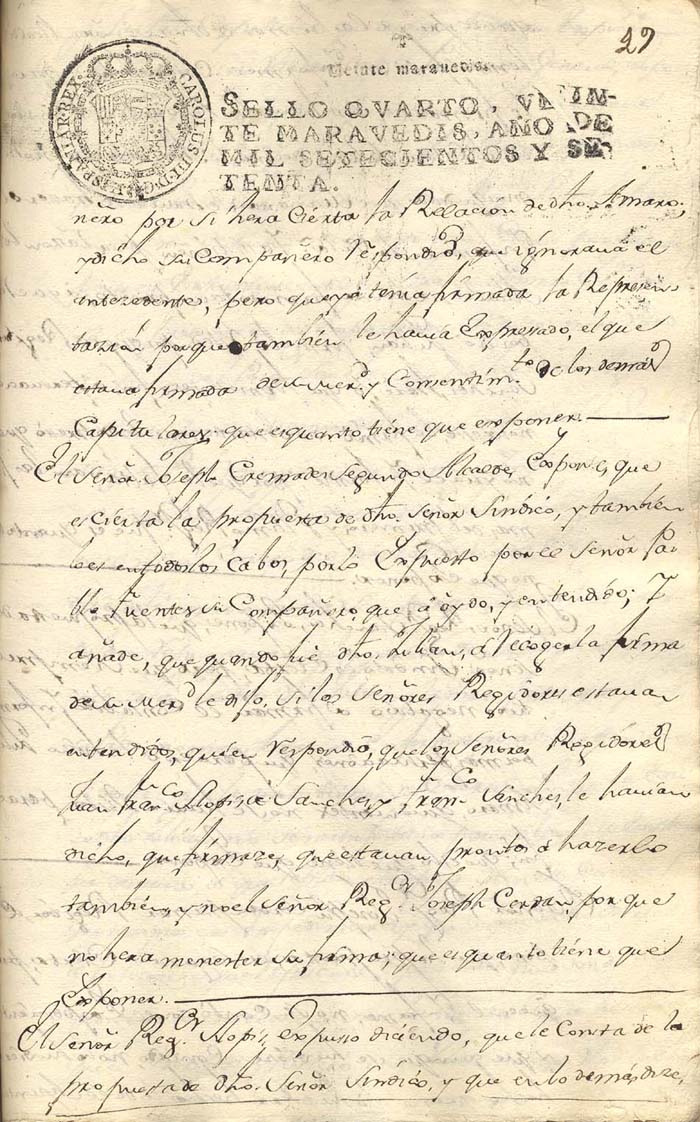 29
Veinte maravedis.
CAROLUS III D.G. HISPANIAR REX
SELLO QVARTO, VEIN-
TE MARAVEDIS, AÑO DE
MIL SETECIENTOS Y SE-
TENTA.
ñero por si hera Cierta la Relación de dho Amaro;
y dicho su Compañero Respondió, que ignorava el
antezedente, pero que ya tenia firmada la Represen
tazión porque tambien le havia Expressado, el que
estava firmada de su Merd. y Comentimto. de los demás
Capitulares; que es quanto tiene que exponer.
El Señor Joseph Cremades Segundo Alcalde, Expone, que
es cierta la propuesta de dho. Señor Sindico, y tambien
lo es en todos los Cabos, por lo Expuesto por el Señor Pa
blo Fuentes su Compañero, que á oydo, y entendido; Y
añade, que quando fue dho. á Recoger la firma
de su Merd. le dijo, si los Señores Regidores estavan
entendidos, quien Respondió, que los Señores Regidores
Juan Franco. Llopis de Sanches, y Franco. Sanches, le havian
dicho, que firmaze, que estavan prontos á hazerlo
tambien, y no el Señor Regor. Joseph Cerdan, por que
no hera menester su firma; que es quanto tiene que
Exponer.
El Señor Regor. Llopis, expuso diciendo, que le Consta de la
propuesta de dho. Señor Sindico, y que en lo demás dize,